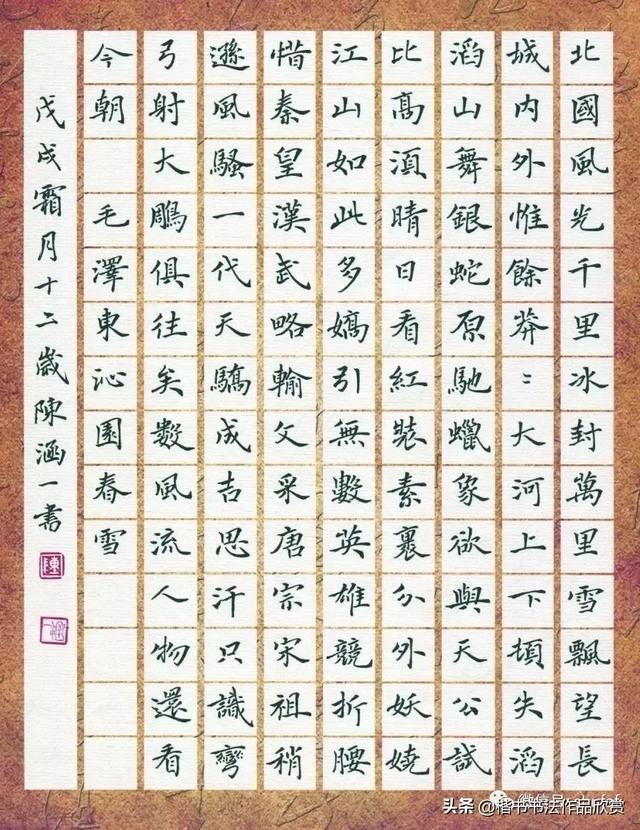 北國風光千里冰封萬里雪飄望長
城內外惟餘莽〻大河上下頓失滔
滔山舞銀蛇原馳蠟象欲與天公試
比髙湏晴日看紅裝素裹分外妖嬈
江山如此多嬌引無數英雄競折腰
惜秦皇漢武略輸文采唐宗宋祖稍
遜風騷一代天驕成吉思汗只識彎
弓射大鵰俱往矣數風流人物還看
今朝 毛澤東沁園春雪
戊戌霜月十二歲陳涵一書
陳
头条 @楷书书法作品欣赏